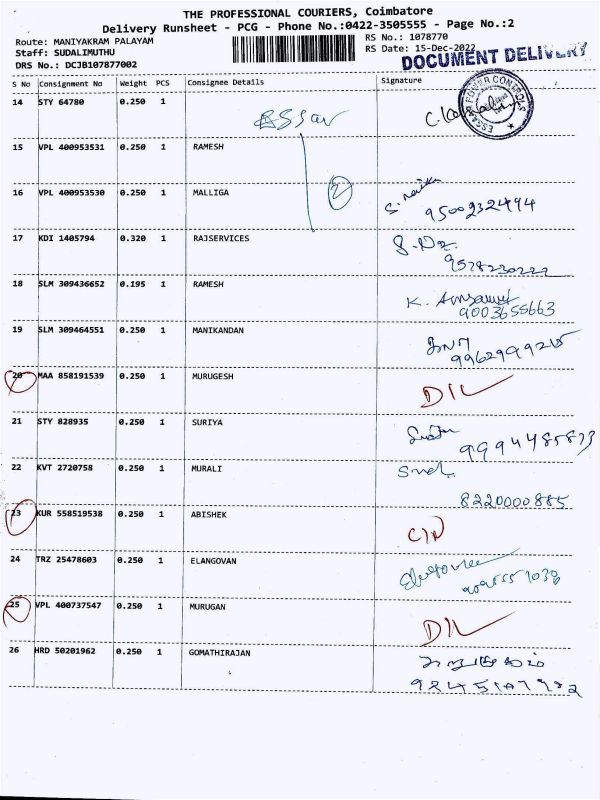 THE PROFESSIONAL COURIERS, Coimbatore
Delivery Runsheet - PCG - Phone No.:0422-3505555 - Page No.:2
Route: MANIYAKRAM PALAYAM
Staff: SUDALIMUTHU
DRS No.: DCJB107877002
RS No.: 1078770
RS Date: 15-Dec-2022
DOCUMENT DELIVERY
S No Consignment No Weight PCS Consignee Details Signature
14 STY 64780 0.250 1 ESSAR
ESSAR POWER CONTROLS
15 VPL 400953531 0.250 1 RAMESH
2
16 VPL 400953530 0.250 1 MALLIGA
9500232494
17 KDI 1405794 0.320 1 RAJSERVICES
9578230222
18 SLM 309436652 0.195 1 RAMESH K.
9003655663
19 SLM 309464551 0.250 1 MANIKANDAN
20 MAA 858191539 0.250 1 MURUGESH D/L
21 STY 828935 0.250 1 SURIYA
9994485873
22 KVT 2720758 0.250 1 MURALI
8220000885
23 KUR 558519538 0.250 1 ABISHEK C/N
24 TRZ 25478603 0.250 1 ELANGOVAN
25 VPL 400737547 0.250 1 MURUGAN D/L
26 HRD 50201962 0.250 1 GOMATHIRAJAN